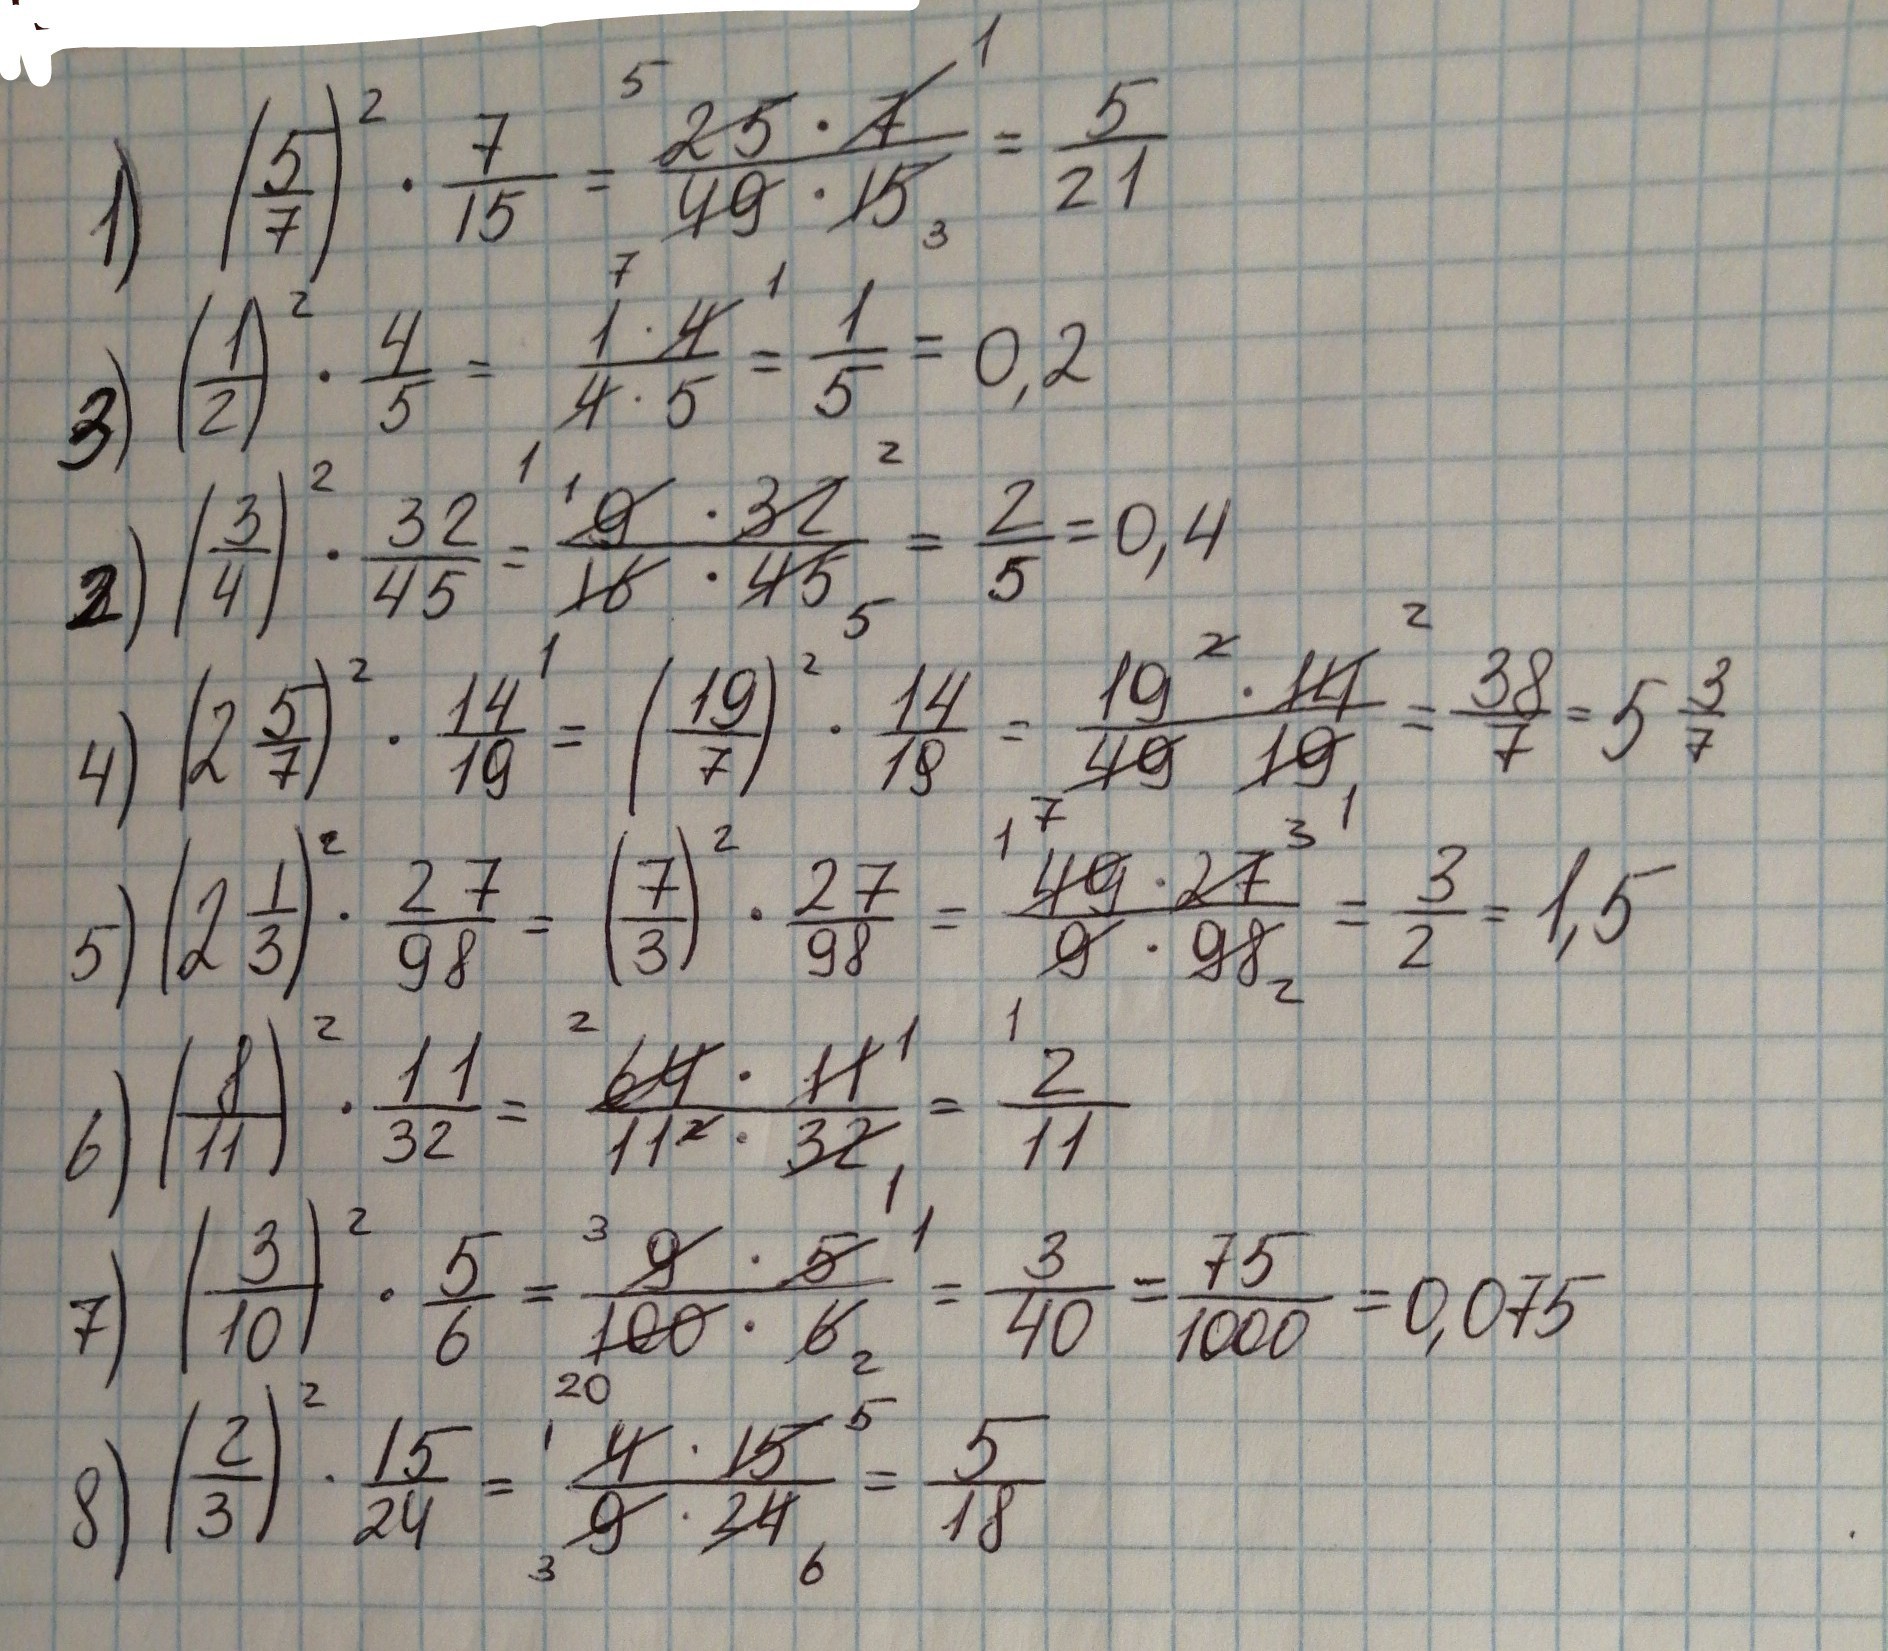 1) (5/7)² · 7/15 = (25 · 7)/(49 · 15) = 5/21
3) (1/2)² · 4/5 = (1 · 4)/(4 · 5) = 1/5 = 0,2
2) (3/4)² · 32/45 = (9 · 32)/(16 · 45) = 2/5 = 0,4
4) (2 5/7)² · 14/19 = (19/7)² · 14/19 = (19² · 14)/(49 19) = 38/7 = 5 3/7
5) (2 1/3)² · 27/98 = (7/3)² · 27/98 = (49 · 27)/(9 · 98) = 3/2 = 1,5
6) (8/11)² · 11/32 = (64 · 11)/(11² · 32) = 2/11
7) (3/10)² · 5/6 = (9 · 5)/(100 · 6) = 3/40 = 75/1000 = 0,075
8) (2/3)² · 15/24 = (4 · 15)/(9 · 24) = 5/18